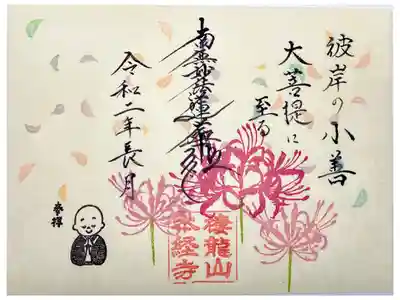 彼岸の小善
大菩提に
至る
南無妙法蓮華経
令和二年長月
奉拝